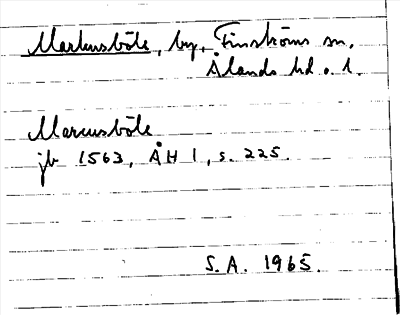 Markusböle, by, Finströms sn,
Ålands hd o. l.
Marcusböle
jb 1563, ÅH 1, s. 225.
S.A. 1965.